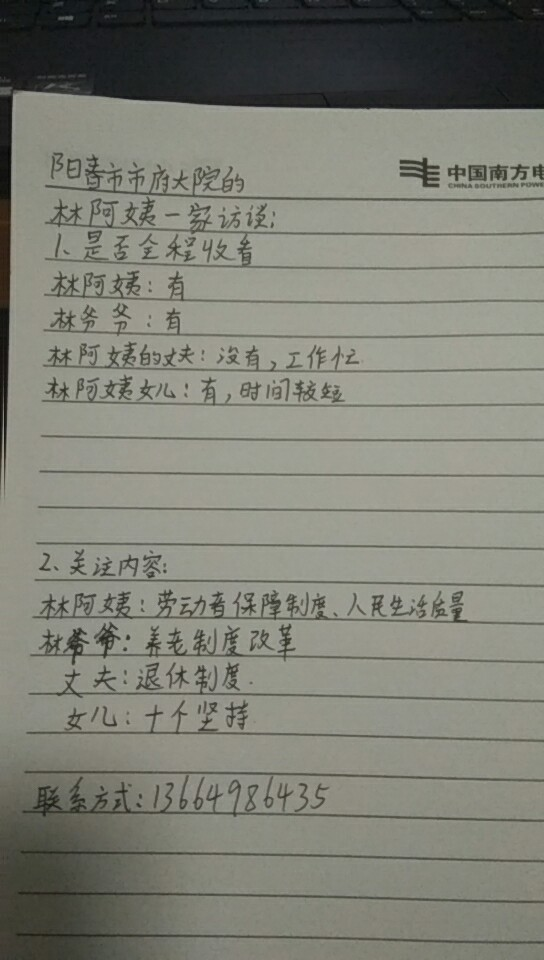 中国南方电
CHINA SOUTHERN POWE
阳春市市府大院的
林阿姨一家访谈:
1、是否全程收看
林阿姨:有
林爷爷:有
林阿姨的丈夫:没有,工作忙
林阿姨女儿:有,时间较短
2、关注内容:
林阿姨:劳动者保障制度、人民生活质量
林爷爷:养老制度改革
丈夫:退休制度.
女儿:十个坚持
联系方式:13664986435